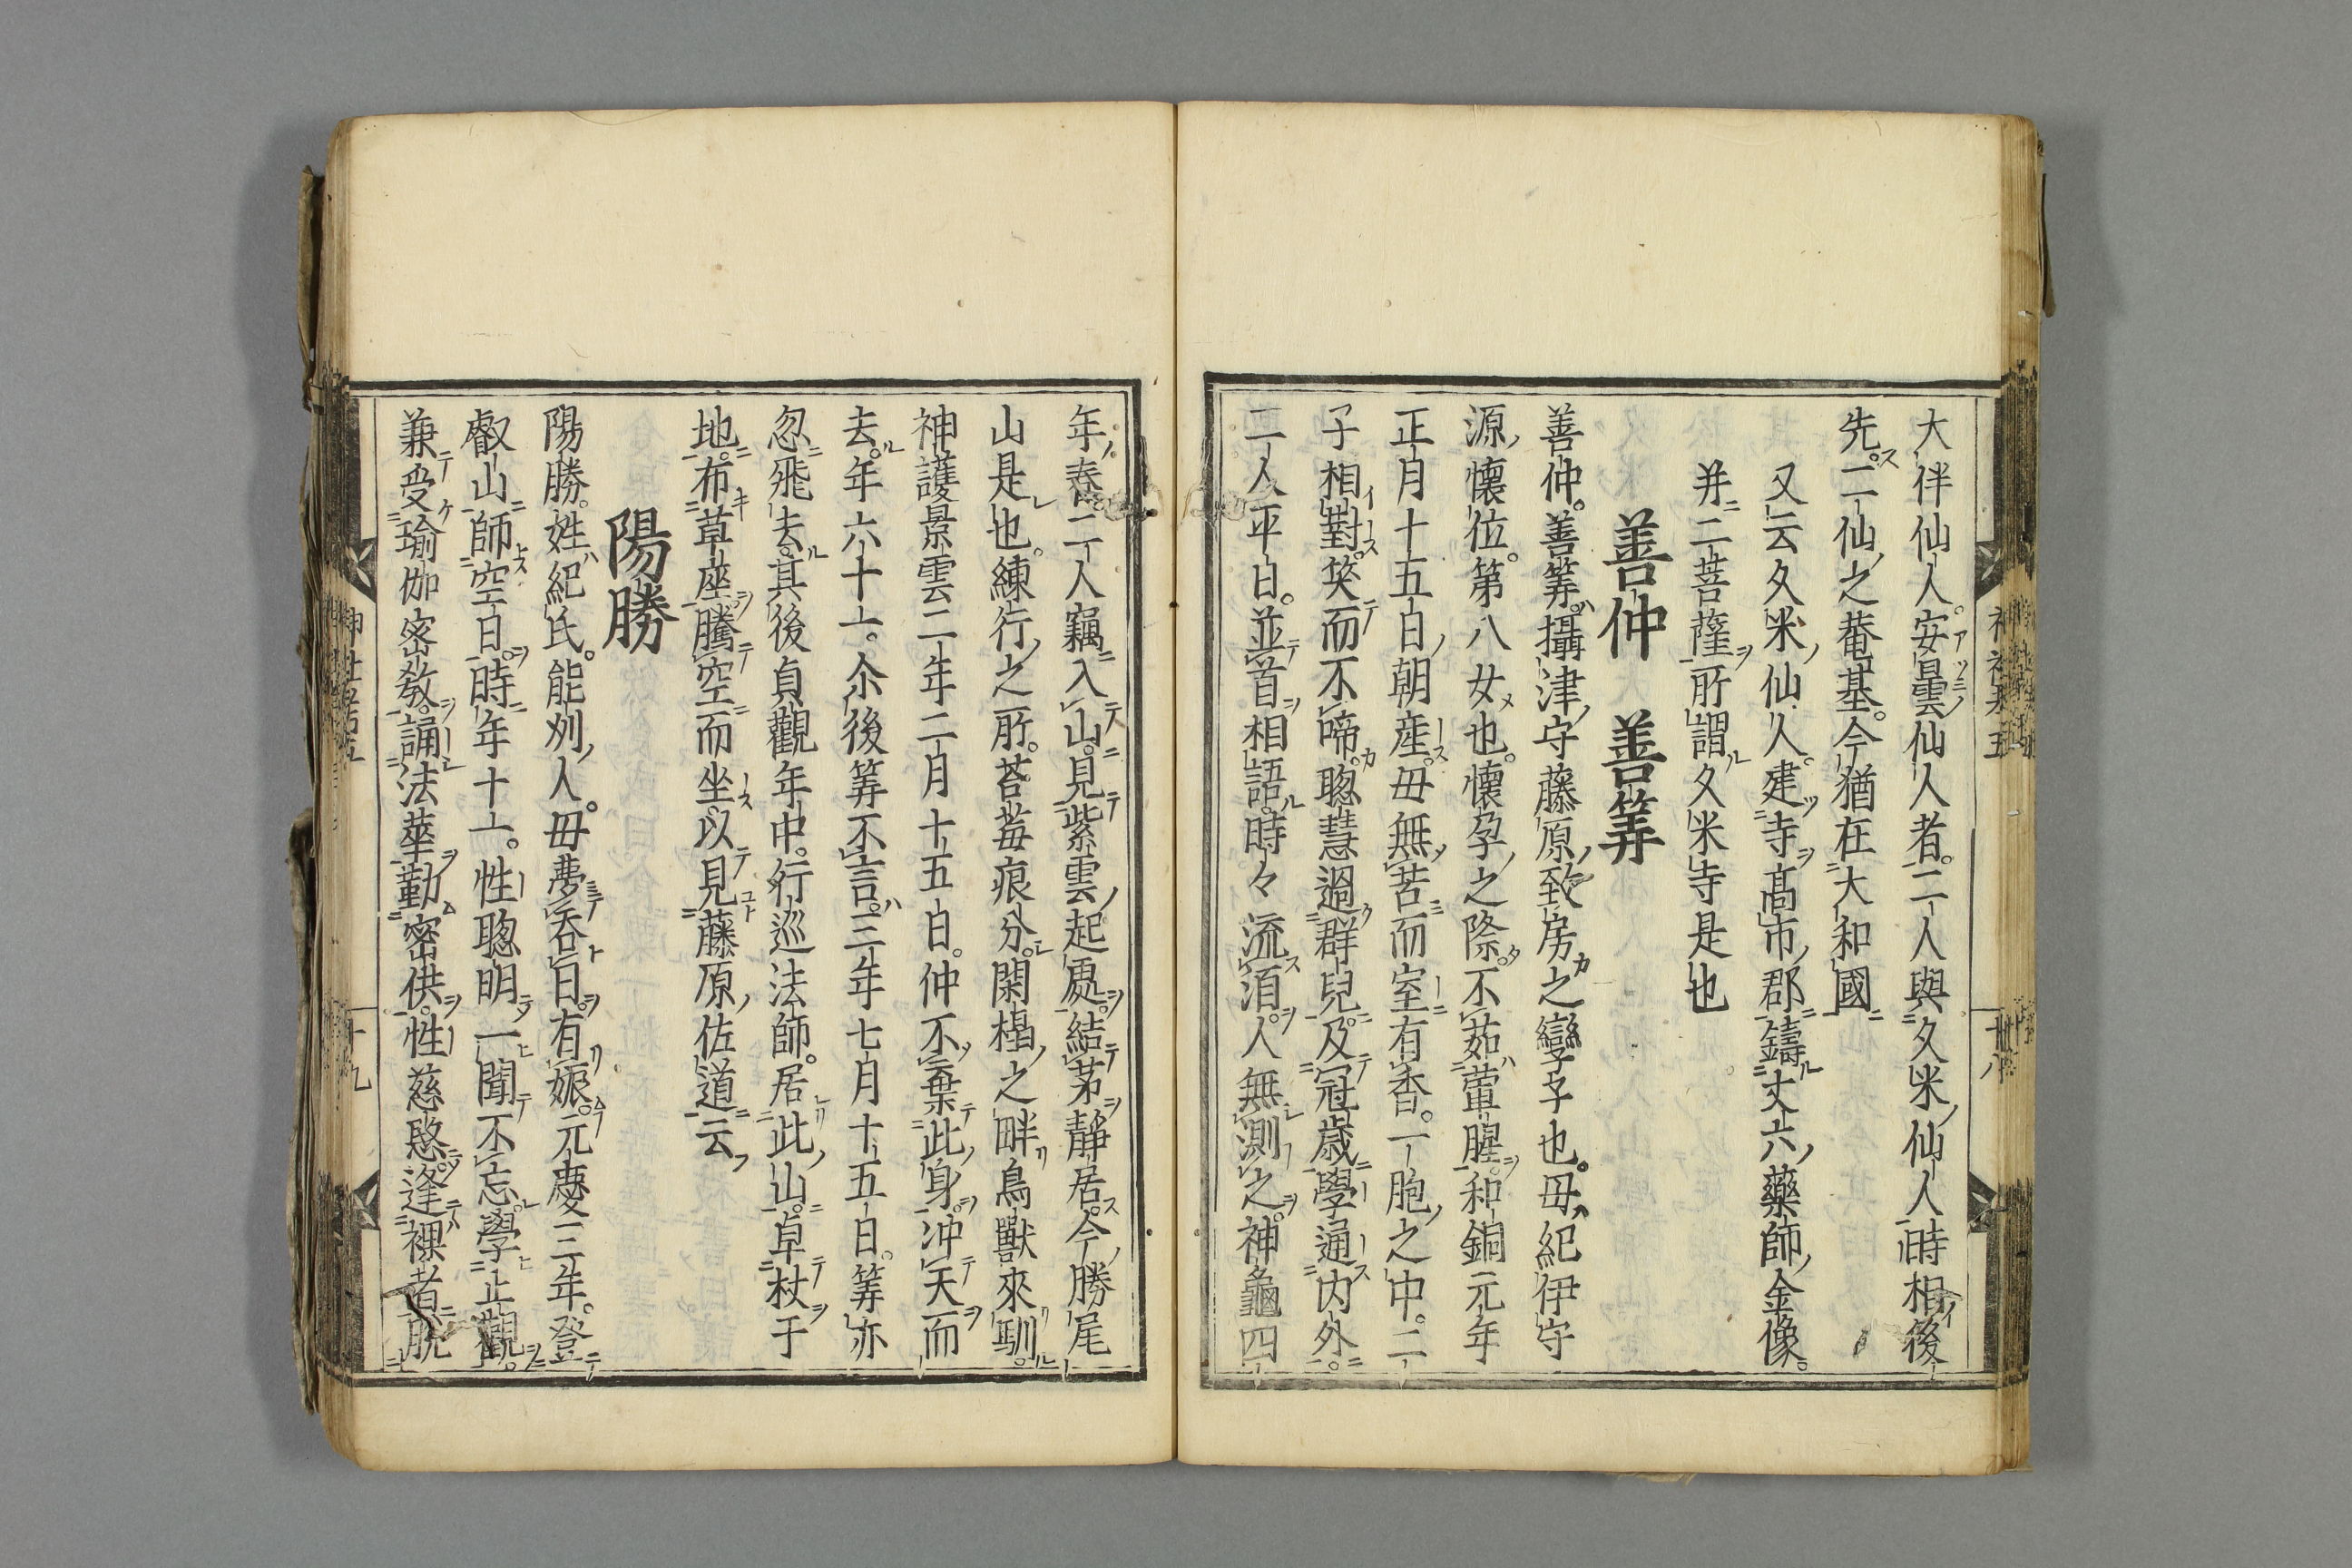 大伴仙人。安曇仙人者。二人與久米仙人時相後
先。二仙之菴基。今猶在大和國
又云久米仙人。建寺高市郡鑄丈六藥師金像。
并二菩薩所謂久米寺是也
善仲 善筭
善仲。善筭。攝津守藤原致房之孿子也。毋紀伊守
源懷位。第八女也。懷孕之際。不茹葷腥。和銅元年
正月十五日朝産。毋無苦而室有香。一胞之中。二
子相對。笑而不啼。聰慧過群兒。及冠歲學通内外。
二人平日。並首相語。時々流淚。人無測之。神龜四
年春。二人竊入山。見紫雲起處。結茅靜居。今勝尾
山是也。練行之所。苔莓痕分。閑榻之畔鳥獸來馴。
神護景雲二年二月十五日。仲不棄此身。冲天而
去。年六十一。尒後筭不言。三年七月十五日。筭亦
忽飛去。其後貞觀年中。行巡法師。居此山。卓杖于
地。布草座。騰空而坐以見藤原佐道云
陽勝
陽勝。姓紀氏。能州人。毋夢呑日。有娠。元慶三年。登
叡山師空日。時年十一。性聰明一聞不忘。學止觀。
兼受瑜伽密教。誦法華勤密供。性慈愍。逢裸者脱